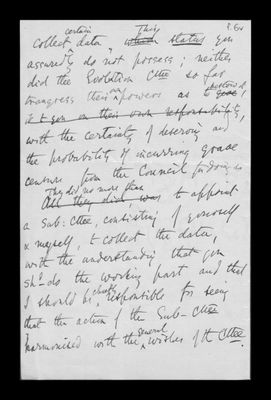 P.6v
certain This
collect data, which status you
assuredly do not possess; neither
did the Evolution Cttee so far
transgress their own powers as to bestow it
it to you on their own responsibility,
with the certainty of deserving and
the probability of incurring grave
censure from the Council for doing so
They did no more than
All they did, was to appoint
a Sub: Cttee, consisting of yourself
& myself, to collect the data,
with the understanding that you
shd do the working part and that
I should be chiefly responsible for seeing
that the action of the Sub-Cttee
harmonised with the general wishes of the Cttee.